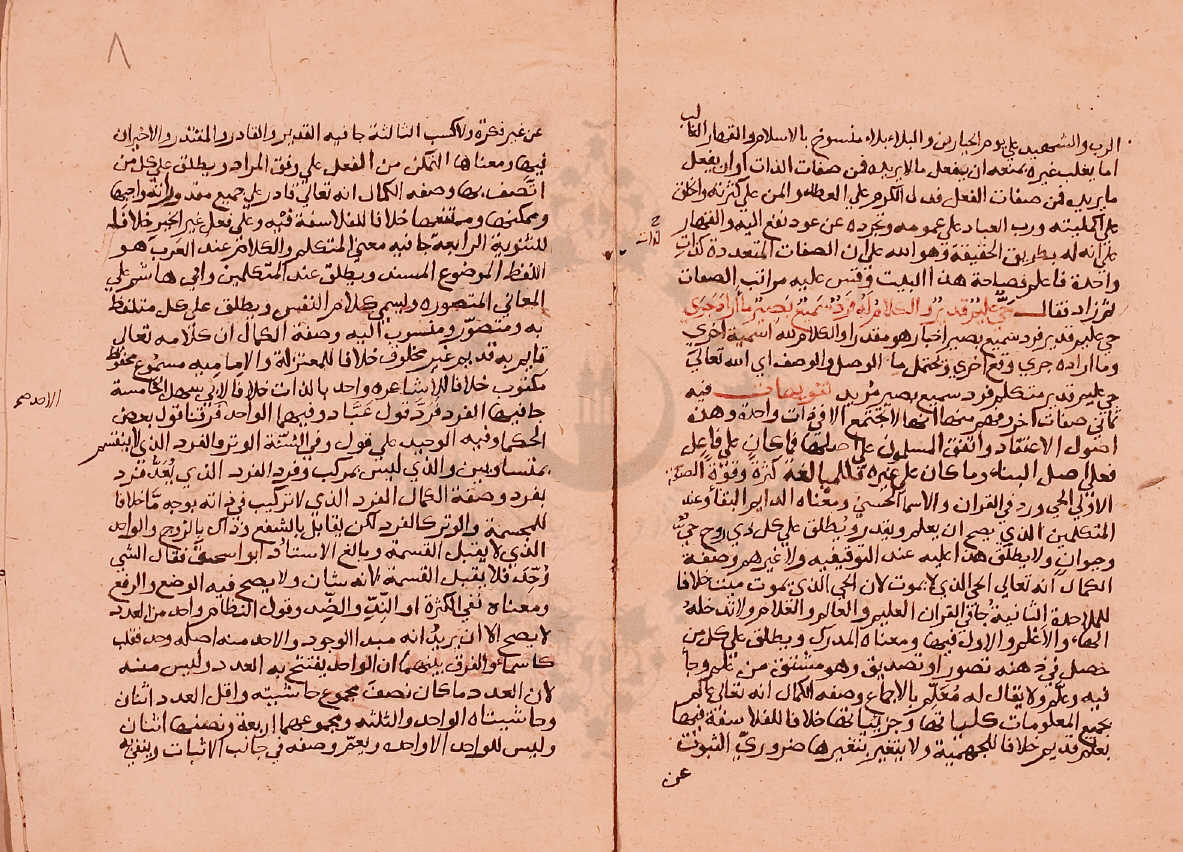 الرب والشهيد على يوم الحيارين والبلاء بلاء منسوخ بالاسلام والقهار الغالب
اما يغلب غيره بمنعه ان يفعل ما لا يريده فمن صفات الذات او ان يفعل
ما يريد فمن صفات الفعل فدل الكرم على العطاء والمن على كثرته والخلق
على كليته ورب العباد على عمومه وتجرده عن عود نفع اليه والقهار
على انه له بطريق الحقيقة وهو الله على ان الصفات المتعددة لذات
واحدة فاعلم فصاحة هذا البيت وقس عليه مراتب الصفات
ثم زاد فقال حي عليم قدير والكلام له فرد سميع بصير ما اراد جرى
حي عليم قدير فرد سميع بصير اخبار هو مقدرا والكلام لله اسمية اخرى
وما اراده جرى وقع اخرى ويحتمل ما الوصل والوصف اي الله تعالى
حي عليم قدير متكلم فرد سميع بصير مريد تقويمات فيه
ثماني صفات اخر وفهم منها انها اجتمع الاوقات واحدة وهذه
اصول الاعتقاد واتفق المسلمون على اصلها فما كان على فاعل
فعلى اصل البناء وما كان على غيره فللمبالغة كثرة وقوة الصفة
الاولى الحي ورد في القران والاسماء الحسنى ومعناه الدايم البقا وعند
المتكلمين الذي يصح ان يعلم ويقدر ويطلق على كل ذي روح حي
وحيوان ولا يطلق هذا عليه عند التوقيفيه ولا غيرهم وصفة
الكمال انه تعالى الحي الذي لا يموت لان الحي الذي يموت ميت خلافا
للملاحدة الثانية جا في القران العليم والعالم والعلام ولا تدخله
الهاء والاعلم والاول فيها ومعناه المدرك ويطلق على كل من
حصل في ذهنه تصور او تصديق وهو مشتق من علم وجا
فيه وعلم ولا يقال له معلم بالاجماع وصفه الكمال انه تعالى عالم
بجميع المعلومات كلياتها وجزيياتها خلافا للفلاسفة فيها
بعلم قديم خلافا للجهمية ولا يتغير بتغيرها ضروري الثبوت
عن
لذات
٨
عن غير فكرة ولا كسب الثالثة جا فيه القدير والقادر والمقتدر والاخيران
فيها ومعناها التمكن من الفعل على وفق المراد ويطلق على كل من
اتصف بها وصفه الكمال انه تعالى قادر على جميع مقدوراته واجبها
وممكنها وممتنعها خلافا للفلاسفة فيه وعلى فعل غير الخير خلافا
للثنوية الرابعة جا فيه معنى المتكلم والكلام عند العرب هو
اللفظ الموضوع المسند ويطلق عند المتكلمين وابي هاشم على
المعاني المتصوره ويسمى كلام النفس ويطلق على كل متلفظ
به ومتصور ومنسوب اليه وصفة الكمال ان كلامه تعالى
قايم به قديم غير مخلوف خلافا للمعتزلة والاماميه مسموع محفوظ
مكتوب خلافا للاشاعره واحد بالذات خلافا لابي سهل الخامسة
جا فيها الفرد فرد قول عباد وفيها الواحد فرقنا قول بعض
الحكما وفيه الوحيد على قول وفي السنة الوتر والفرد الذي لا ينقسم
بمتساويين والذي ليس بمركب وفرد الفرد الذي يعد فرد
بفرد وصفة الكمال الفرد الذي لا تركيب في ذاته بوجه ما خلافا
للمجسمة والوتر كالفرد لكن يقابل بالشفع وذاك بالزوج والواحد
الذي لا يقبل القسمة وبالغ الاستاذ ابو اسحق فقال الشي
وحد فلا يقبل القسمة لانه شان ولا يصح فيه الوضع والرفع
ومعناه نفي الكثرة او الند والضد وقول النظام واحد من العدد
لا يصح الا ان يريد انه مبدا الوجود والاحد منه اصله وحد فقلب
كاسماء والفرق بينهما ان الواحد يفتتح به العدد وليس منه
لان العدد ما كان نصف مجموع حاشيته واقل العدد اثنان
وحاشيتاه الواحد والثلثه ومجموعهما اربعة ونصفها اثنان
وليس للواحد الا واحده ويعم وصفه في جانب الاثبات وينفي
الاحد صح